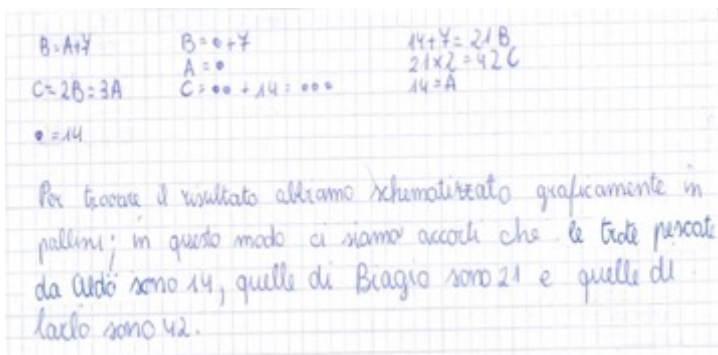 B=A+7 B=•+7 14+7=21B
A=• 21x2=42C
C=2B=3A C=••+14=••• 14=A
•=14
Per trovare il risultato abbiamo schematizzato graficamente in
pallini; in questo modo ci siamo accorti che le trote pescate
da Aldo sono 14, quelle di Biagio sono 21 e quelle di
Carlo sono 42.